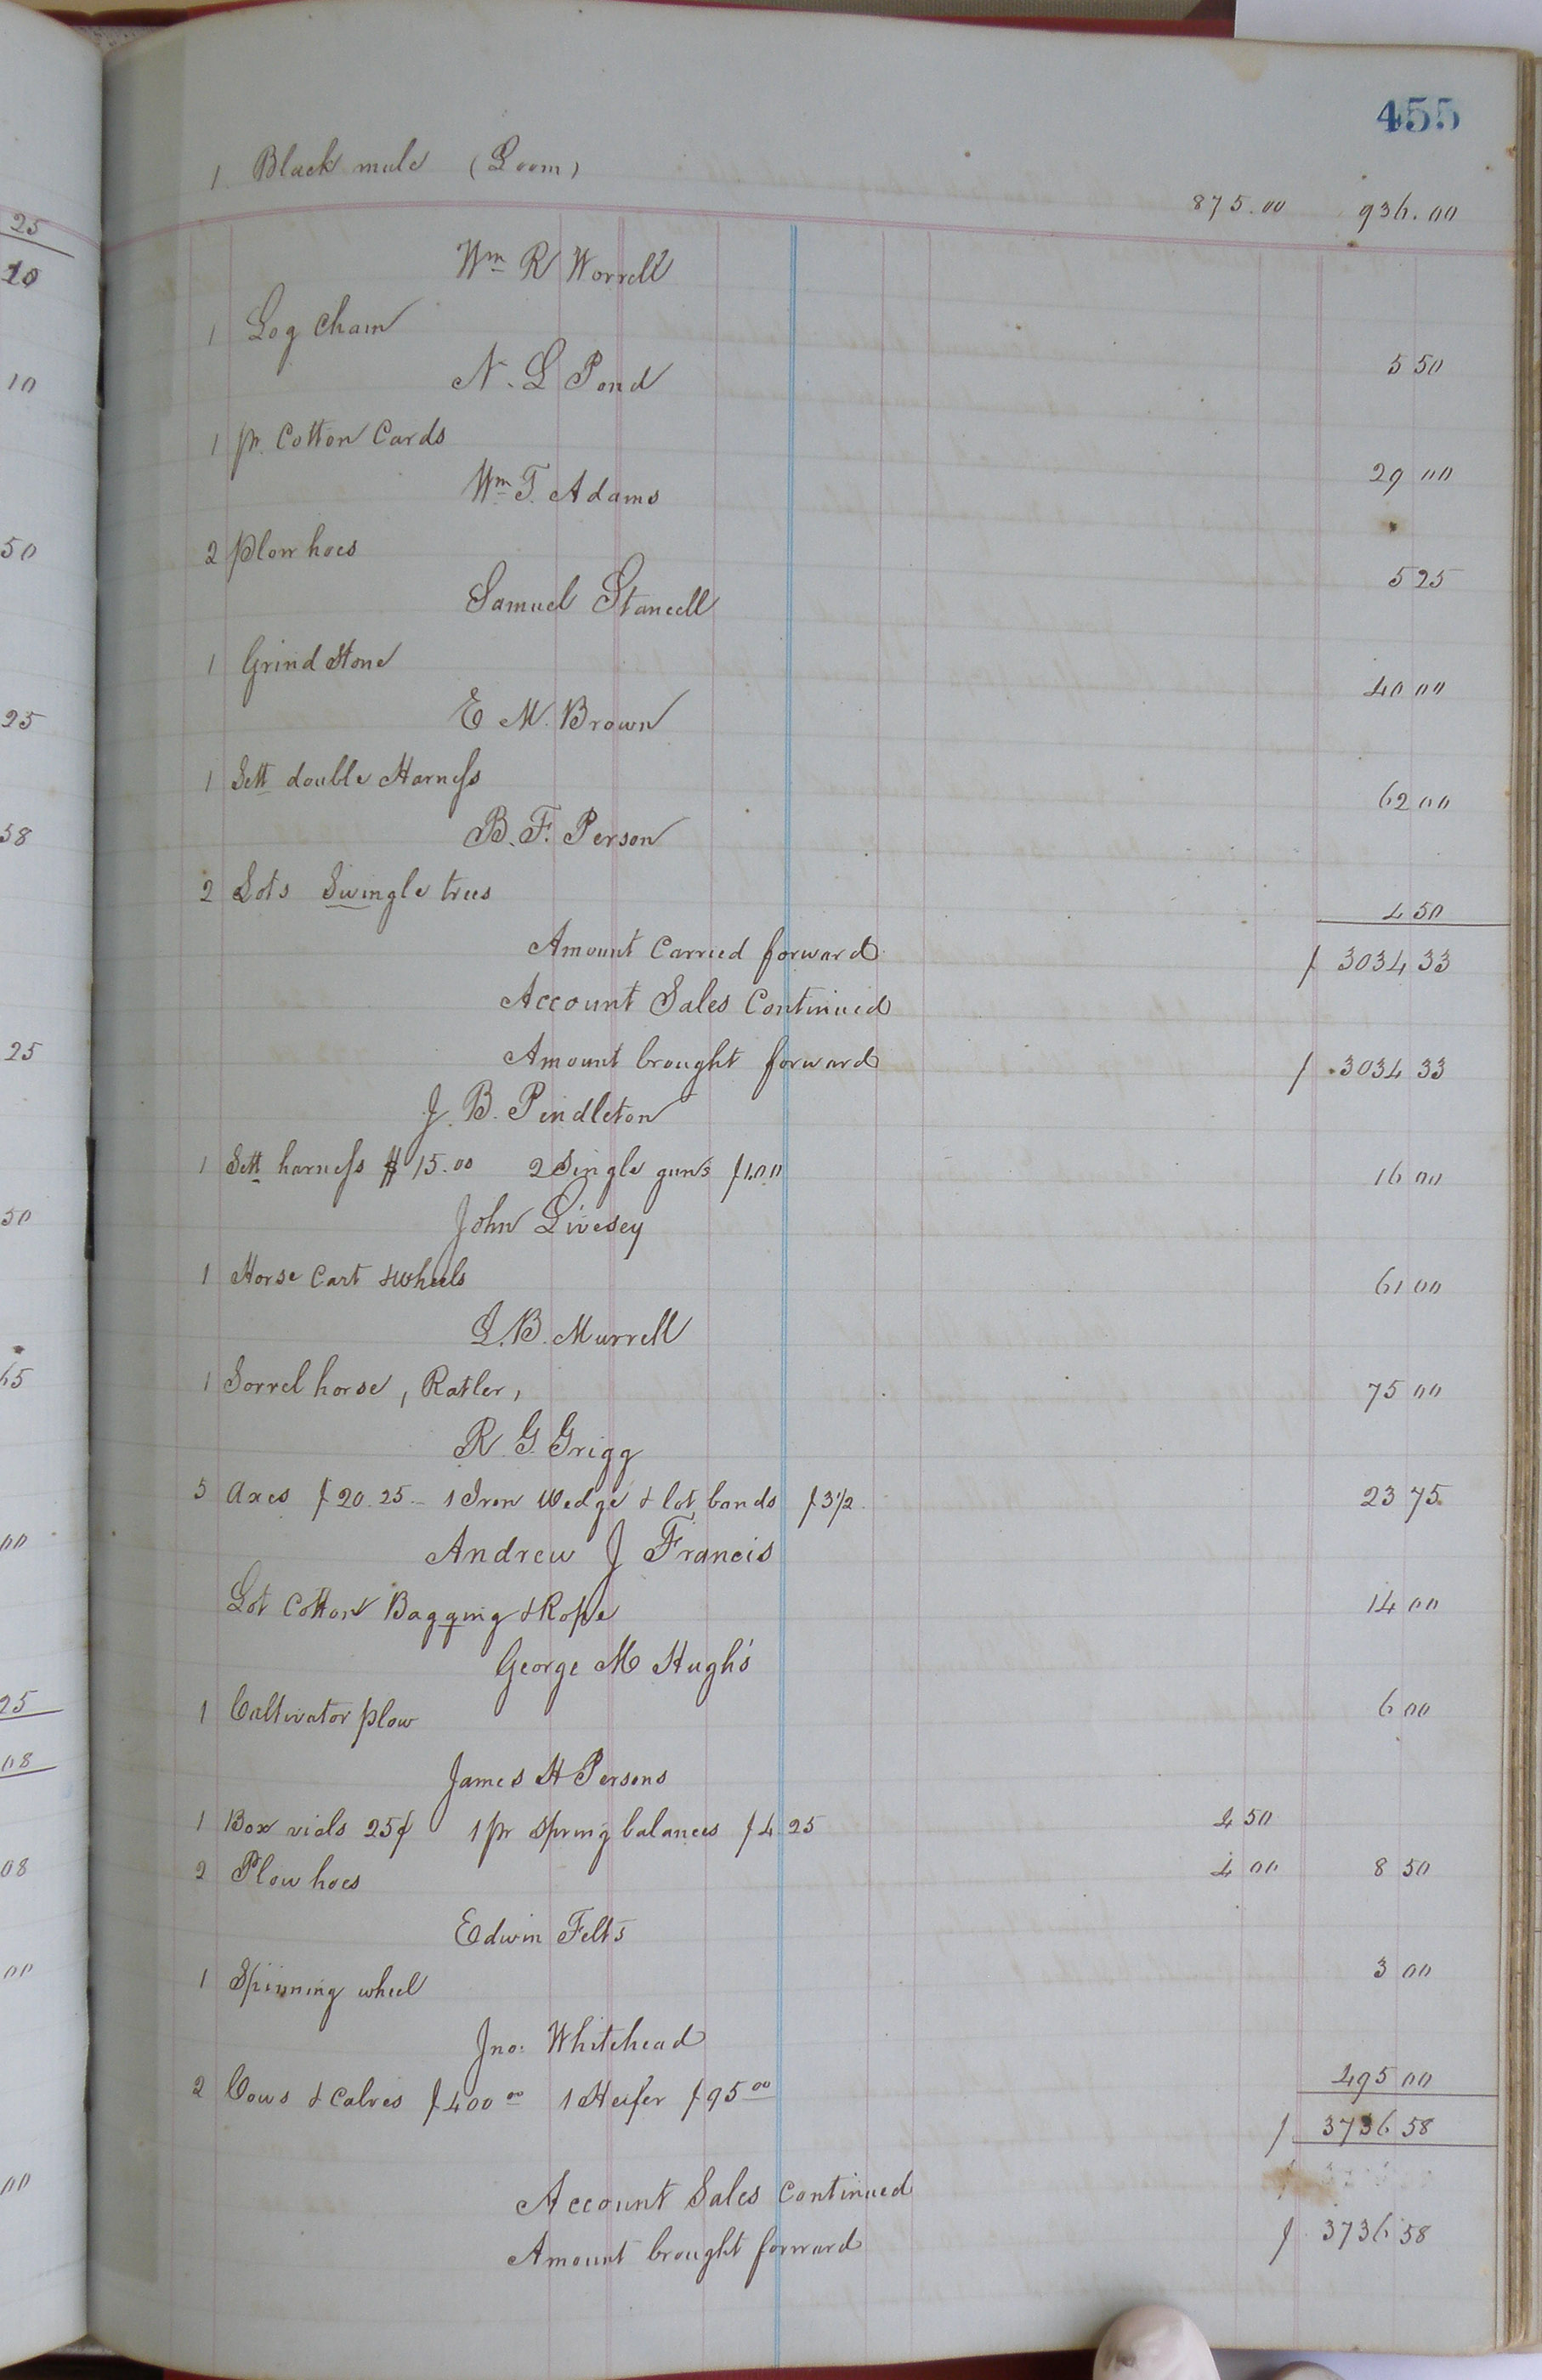 455
1 Black mule (Loom) 875.00 936.00
Wm R Worrell
1 Log Chain 5 50
N. L Pond
1 pr Cotton Cards 29 00
Wm T. Adams
2 plow hoes 5 25
Samuel Stancell
1 Grind Stone 40 00
E M. Brown
1 Sett double Harness 62 00
B. F. Person
2 Lots Swingle trees 4 50
Amount Carried forward $ 3034 33
Account Sales Continued
Amount brought forward $ 3034 33
J. B. Pendleton
1 Sett harness $15.00 2 Single guns $1.00 16 00
John Livesey
1 Horse Cart & Wheels 61 00
L. B. Murrell
1 Sorrel horse, Ratler, 75 00
R. G. Grigg
5 Axes $20.25 - 1 Iron Wedge & lot bands $3 1/2 23 75
Andrew J Francis
Lot Cotton Bagging & Rope 14 00
George M Hugh's
1 Cultivator plow 6 00
James H Persons
1 Box vials 25¢ 1 pr Spring balances $4 25 4 50
2 Plow hoes 4 00 8 50
Edwin Felts
1 Spinning wheel 3 00
Jno: Whitehead
2 Cows & Calves $400 00 1 Heifer $95 00 495 00
$ 3736 58
Account Sales Continued
Amount brought forward $ 3736 58